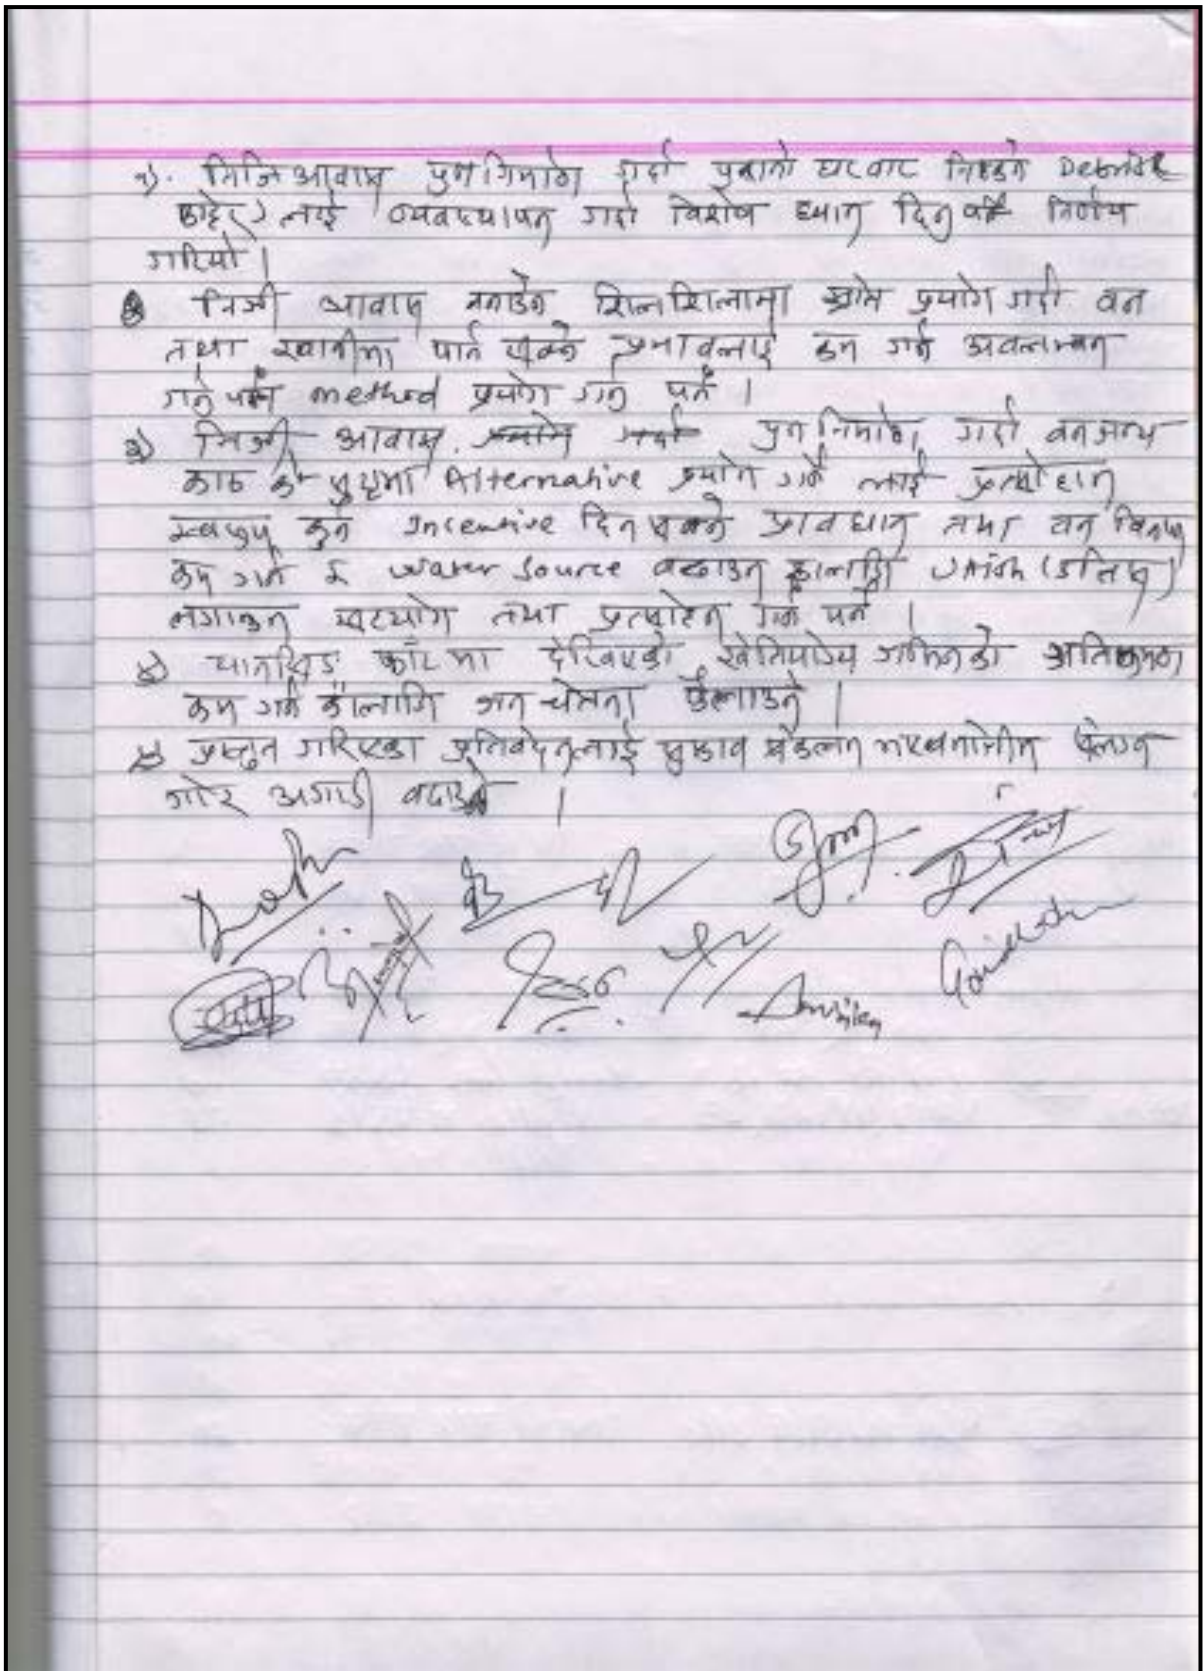 १). निजि आवास पुनर्निर्माण गर्दा पुरानो घरबाट निस्कने Debris
लाई व्यवस्थापन गर्दा विशेष ध्यान दिनु पर्ने निर्णय
गरियो।
निजी आवास बनाउने शिलशिलामा स्रोत प्रयोग गर्दा वन
तथा खानीमा पार्न सक्ने प्रभावलाई कम गर्न अवलम्बन
गर्नु पर्ने method प्रयोग गर्नु पर्ने।
३) निजी आवास पुनर्निर्माण गर्दा वनजन्य
काठ को Alternative प्रयोग गर्ने लाई प्रोत्साहान
स्वरुप कुनै Incentive दिन सक्ने प्रावधान तथा वन विनास
कम गर्न र water source बढाउन कालागि (उत्तिस)
लगाउन सहयोग तथा प्रत्साहन गर्नु पर्ने।
४) फाँटमा देखिएको खेतियोग्य जमिनको अतिक्रमण
कम गर्न कालागि जन चेतना फैलाउने।
५) प्रस्तुत गरिएका प्रतिवेदनलाई सुझाव संकलन संलग्न
गरेर अगाडी बढाउने।